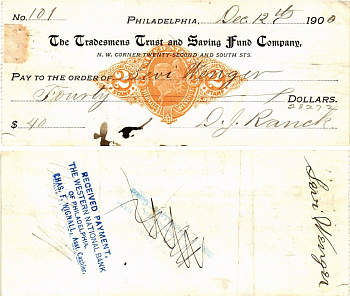 No. 101 Philadelphia, Dec 12th 1900
The Tradesmens Trust and Saving Fund Company,
N. W. CORNER TWENTY-SECOND AND SOUTH STS.
PAY TO THE ORDER OF Levi Wenger
Fourty DOLLARS.
$ 40 D. J. Ranck
RECEIVED PAYMENT,
THE WESTERN NATIONAL BANK
OF PHILADELPHIA.
CHAS. F. WIGNALL, Asst. Cashier.
Levi Wenger